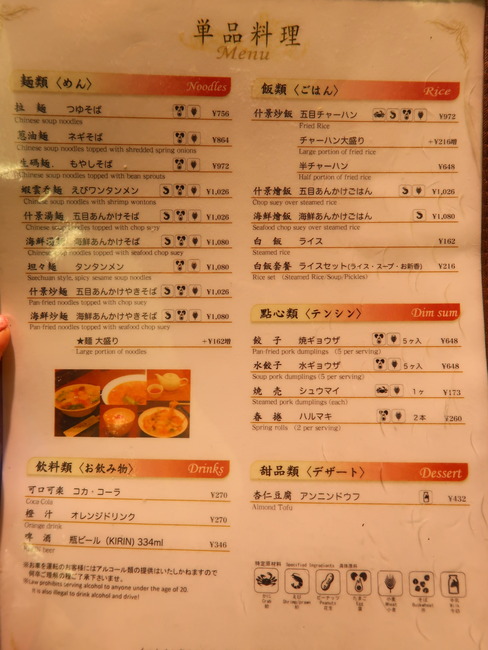 単品料理
Menu
麺類〈めん〉 Noodles
拉麺 つゆそば ¥756
Chinese soup noodles
葱油麺 ネギそば ¥864
Chinese soup noodles topped with shredded spring onions
生碼麺 もやしそば ¥972
Chinese soup noodles topped with bean sprouts
蝦雲呑麺 えびワンタンメン ¥1,026
Chinese soup noodles with shrimp wontons
什景湯麺 五目あんかけそば ¥1,026
Chinese soup noodles topped with chop suey
海鮮湯麺 海鮮あんかけそば ¥1,080
Chinese soup noodles topped with seafood chop suey
坦々麺 タンタンメン ¥1,080
Saechuan style, spicy sesame soup noodles
什景炒麺 五目あんかけやきそば ¥1,026
Pan-fried noodles topped with chop suey
海鮮炒麺 海鮮あんかけやきそば ¥1,080
Pan-fried noodles topped with seafood chop suey
★麺 大盛り +¥162増
Large portion of noodles
飲料類〈お飲み物〉 Drinks
可口可楽 コカ・コーラ ¥270
Coca-Cola
橙汁 オレンジドリンク ¥270
Orange drink
啤酒 瓶ビール (KIRIN) 334ml ¥346
beer
※お車を運転のお客様にはアルコール類の提供はいたしかねますので
何卒ご理解の程ご了承下さいませ。
※Law prohibits serving alcohol to anyone under the age of 20.
It is also illegal to drink alcohol and drive!
飯類〈ごはん〉 Rice
什景炒飯 五目チャーハン ¥972
Fried Rice
チャーハン大盛り +¥216増
Large portion of fried rice
半チャーハン ¥648
Half portion of fried rice
什景燴飯 五目あんかけごはん ¥1,026
Chop suey over steamed rice
海鮮燴飯 海鮮あんかけごはん ¥1,080
Seafood chop suey over steamed rice
白飯 ライス ¥162
Steamed rice
白飯套餐 ライスセット(ライス・スープ・お新香) ¥216
Rice set (Steamed Rice/Soup/Pickles)
點心類〈テンシン〉 Dim sum
餃子 焼ギョウザ 5ヶ入 ¥648
Pan-fried pork dumplings (5 per serving)
水餃子 水ギョウザ 5ヶ入 ¥648
Soup pork dumplings (5 per serving)
焼売 シュウマイ 1ヶ ¥173
Steamed pork dumplings (each)
春捲 ハルマキ 2本 ¥260
Spring rolls (2 per serving)
甜品類〈デザート〉 Dessert
杏仁豆腐 アンニンドウフ ¥432
Almond Tofu
特定原材料 Specified Ingredients
かに えび ピーナッツ たまご 小麦 そば 牛乳
Crab Shrimp/prawn Peanuts Egg Wheat Buckwheat Milk